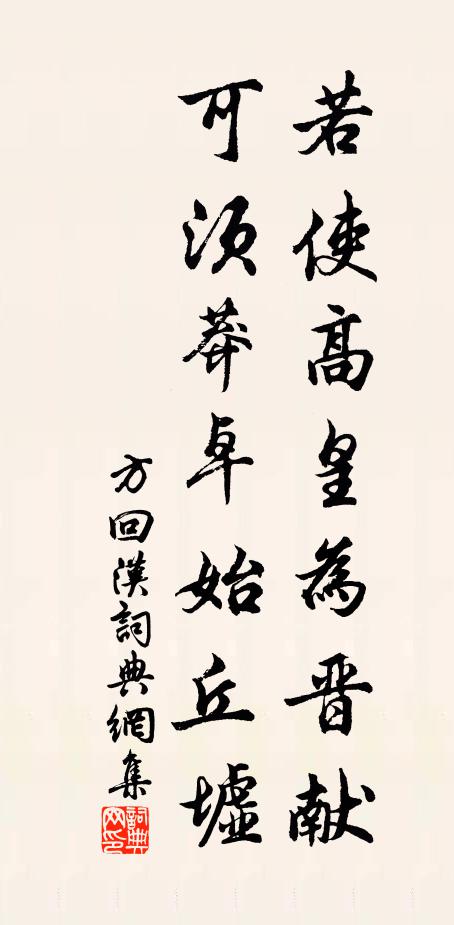 若使高皇為晋献
可須莽卓始丘墟
方回漢詞典網集
詞典網印